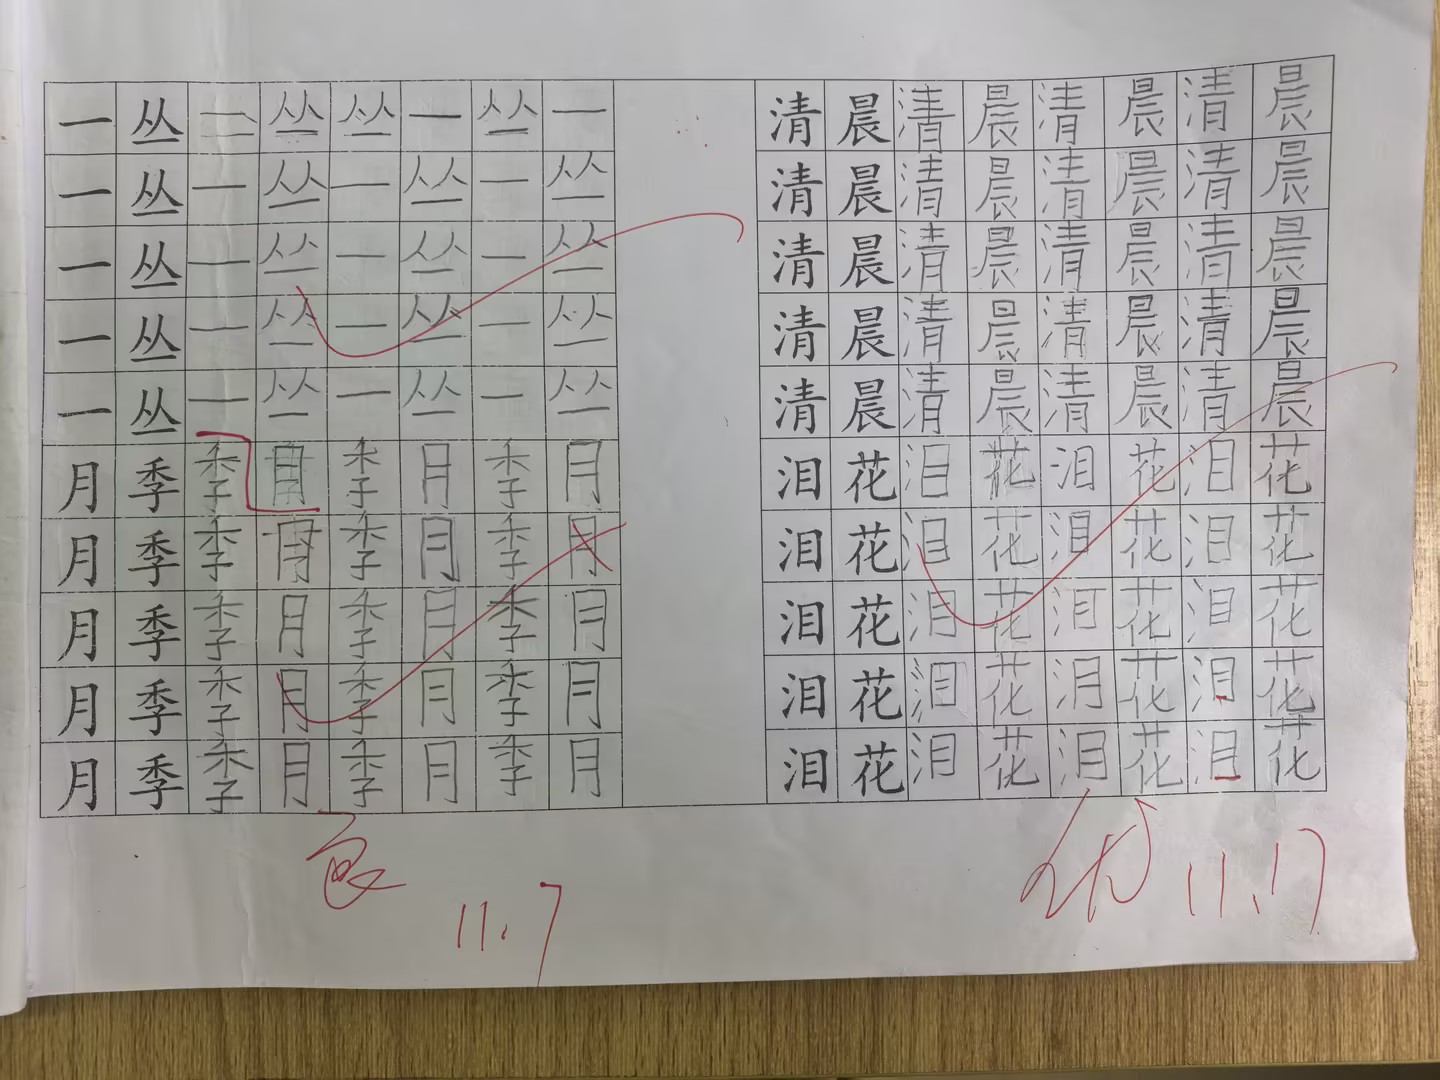 一丛一丛丛一丛一
一丛一丛一丛一丛
一丛一丛一丛一丛
一丛一丛一丛一丛
一丛一丛一丛一丛
月季季月季月季月
月季季月季月季月
月季季月季月季月
月季季月季月季月
月季季月季月季月
良
11.7
清晨清晨清晨清晨
清晨清晨清晨清晨
清晨清晨清晨清晨
清晨清晨清晨清晨
清晨清晨清晨清晨
泪花泪花泪花泪花
泪花泪花泪花泪花
泪花泪花泪花泪花
泪花泪花泪花泪花
泪花泪花泪花泪花
优 11.17